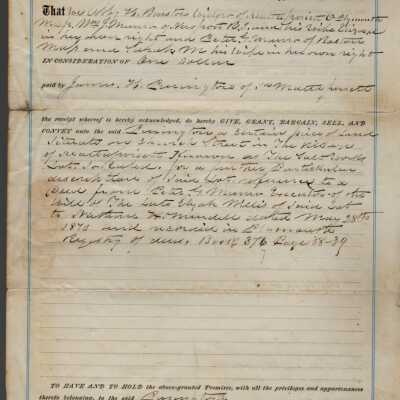 That we Abby H. Bartos Widow of Mattapoisett Plymouth
Mass, Wm J. Munro of Newport R.I. and his wife
in her own right and Betr G. Munro of Boston
Mass and Sarah M his wife in her own right
IN CONSIDERATION OF One dollar
paid by James H. Purrington of Mattapoisett
the receipt whereof is hereby acknowledged, do hereby GIVE, GRANT, BARGAIN, SELL, AND
CONVEY unto the said Purrington a certain piece of land
situate on Church Street in the Village
of Mattapoisett Known as The
Lot, So Called, for a further Particular
description of said Lot reference to a
Deed from Betr G. Munro Executor of the
Will of The Late Elijah Willis of said Lot
to Nathan H. Mendell dated May 28th
187 and recorded in Plymouth
Registry of deeds Book 376 Page 38-39
TO HAVE AND TO HOLD the above-granted Premises, with all the privileges and appurtenances
thereto belonging, to the said Purrington